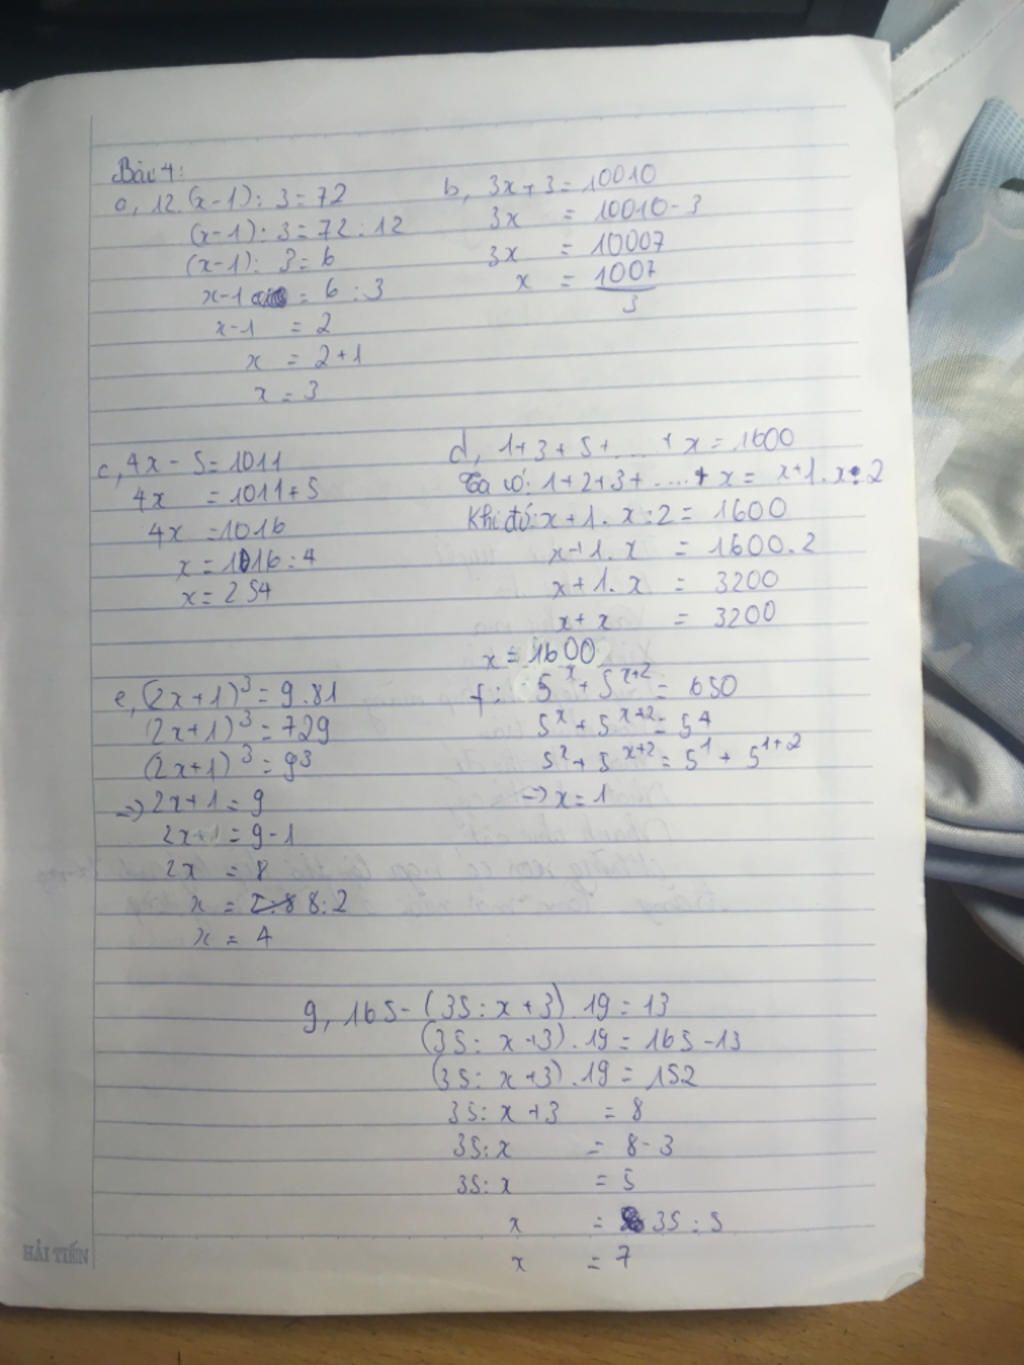 Bài 4:
a, 12.(x-1): 3 = 72
(x-1): 3 = 72:12
(x-1): 3 = 6
x-1 = 6:3
x-1 = 2
x = 2+1
x = 3
b, 3x+3 = 10010
3x = 10010-3
3x = 10007
x = 1007/3
c, 4x - 5 = 1011
4x = 1011+5
4x = 1016
x = 1016:4
x = 254
d, 1+3+5+....+x = 1600
Ta có: 1+2+3+.....+x = x+1.x:2
Khi đó: x+1.x:2 = 1600
x+1.x = 1600.2
x+1.x = 3200
x+x = 3200
x = 1600
e, (2x+1)³ = 9.81
(2x+1)³ = 729
(2x+1)³ = 9³
=> 2x+1 = 9
2x+1 = 9-1
2x = 8
x = 8:2
x = 4
f: 5ˣ + 5ˣ⁺² = 650
5ˣ + 5ˣ⁺² = 5⁴
5² + 5ˣ⁺² = 5¹ + 5¹⁺²
=> x = 1
g, 165-(35:x+3).19 = 13
(35:x+3).19 = 165-13
(35:x+3).19 = 152
35:x+3 = 8
35:x = 8-3
35:x = 5
x = 35:5
x = 7
HẢI TIẾN